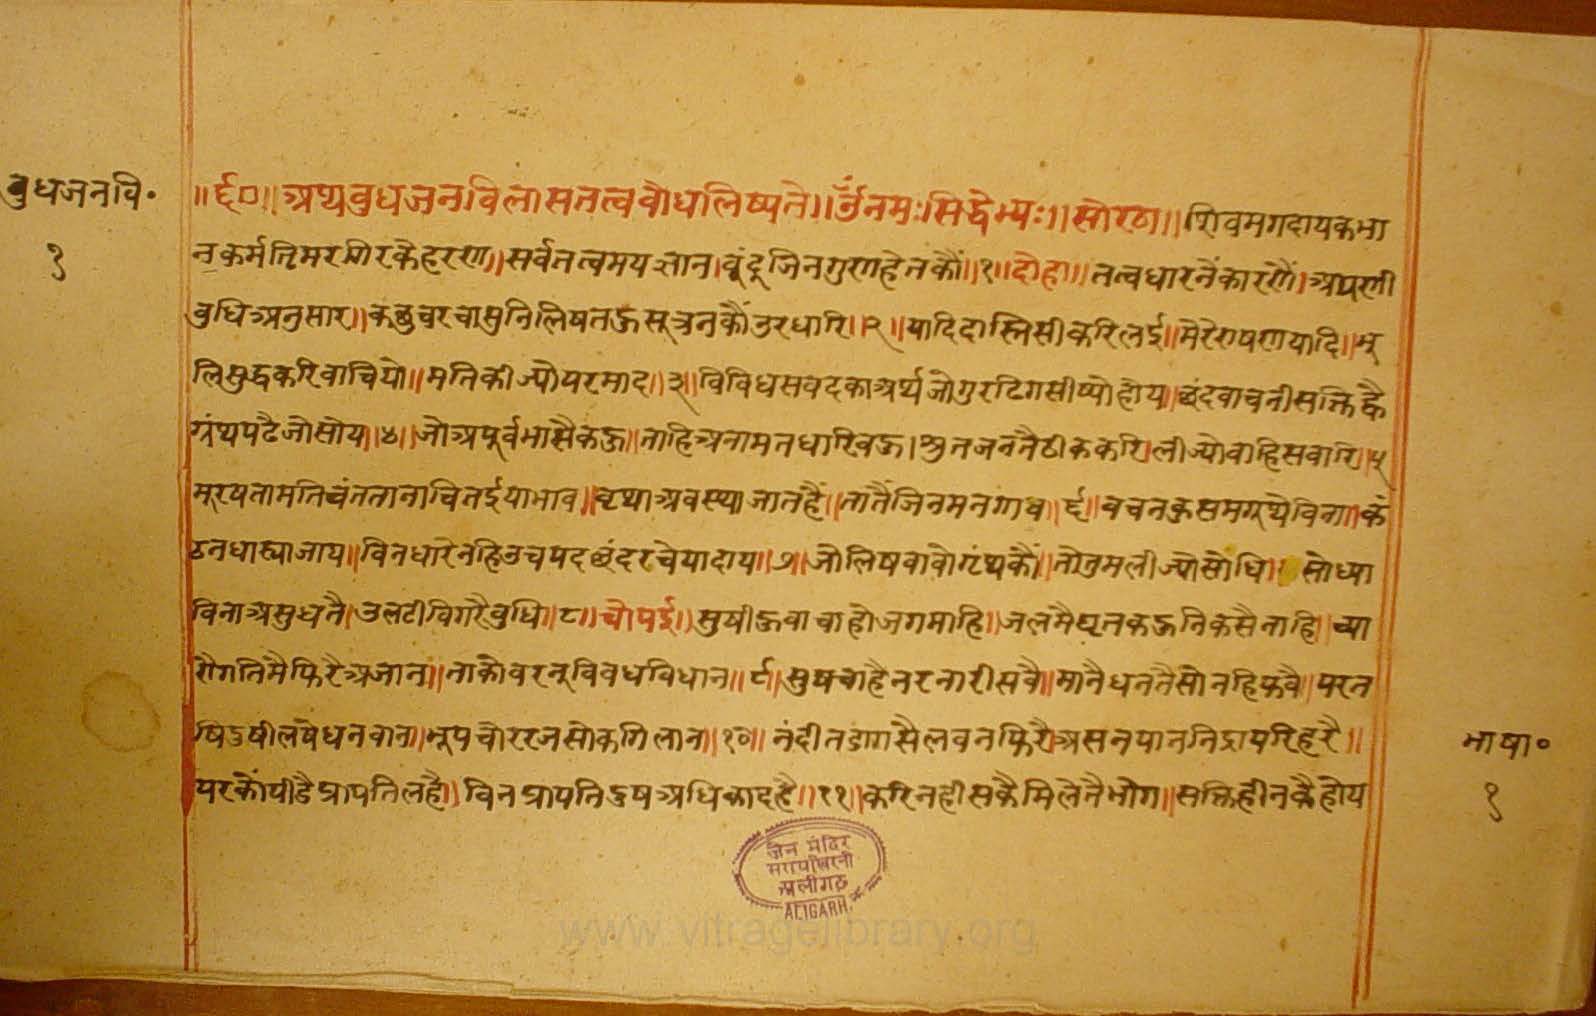 बुधजनवि॰
१
॥६०॥ अथ बुधजनविलासतत्वबोधलिष्यते॥ ॐनमःसिद्धेभ्यः॥ सोरठा॥ शिवमगदायकभा
नकर्मतिमरगिरकेहरण॥ सर्वतत्वमयज्ञान। वंदूजिनगुणहेतकौं॥१॥ दोहा॥ तत्वधारनेंकारणैं। अपणी
बुधिअनुसार॥ कछुचरचासुनिलिषतऊसूत्रनकौंउरधारि॥२॥ यादिदास्तिसीकरिलई॥ मेरेराषणयादि॥ भू
लिसुद्धकरिवाचियो॥ मतिकीज्योपरमाद॥३॥ विविधसवदकाअर्थजोगुरढिगसीष्योहोय॥ छंदवाचनीसक्तिह्वै
ग्रंथपढैजोसोय॥४॥ जोअपूर्वभासैकऊ॥ ताहिअनामतधारिवऊ। श्रुतजनतैठीककरि। लीज्योवाहिसवारि॥५
मूरषतामतिचंततानाचितईयाभाव॥ व्रथाअवस्थाजातहैं॥ तातैंजिनमतगाव॥६॥ वचनकुसमगूंथेविना॥ कं
ठनधास्याजाय॥ विनधारेनहिउचपदछंदरचेयादाय॥७॥ जोलिषवावोग्रंथकौं॥ तोतुमलीज्योसोधि॥ सोध्या
विनाअसुधतै। उलटीविगरैबुधि॥८॥ चोपई॥ सुषीऊवाचाहोजगमाहि॥ जलमैघृतकऊनिकसैनाहि॥ च्या
रौगतिमैफिरैअजान॥ ताकोवरनूविवधविधान॥९॥ सुषचाहैनरनारीसवै॥ मानैधनतैसोनहिफवै॥ परत
षिदुषीलषेधनवान॥ भूपचोररजसोकगिलान॥१०॥ नंदीतडागसैलवनफिरै। असनपाननिद्रापरिहरै॥
परकोंपीडैप्रापतिलहै॥ विनप्रापतिदुषअधिकादहै॥११॥ करिनहीसकैमिलेनैभोग॥ सक्तिहीनकैहोय
भाषा॰
१
जैन मंदिर
अलीगढ़
ALIGARH.
www.vitragelibrary.org